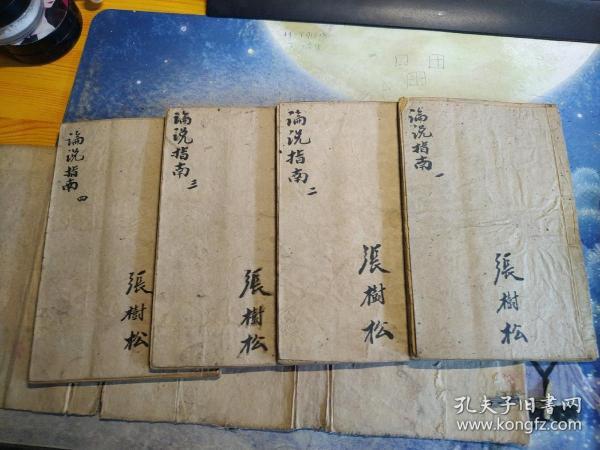 論说指南 一
張樹松
論说指南 二
張樹松
論说指南 三
張樹松
論说指南 四
張樹松
孔夫子旧书网
www.kongfz.com